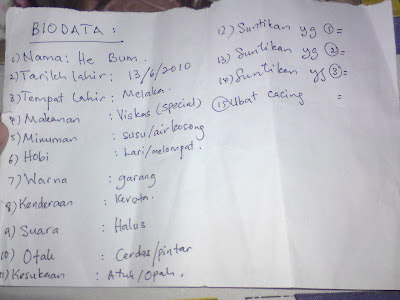 BIODATA :
1) Nama : He Bum.
2) Tarikh lahir : 13/6/2010
3) Tempat Lahir : Melaka.
4) Makanan : Viskas (special)
5) Minuman : susu/air kosong
6) Hobi : Lari/melompat.
7) Warna : garang
8) Kenderaan : Kereta.
9) Suara : Halus
10) Otak : Cerdas/pintar
11) Kesukaan : Atuk/Opah.
12) Suntikan yg ① =
13) Suntikan yg ② =
14) Suntikan yg ③ =
⑮ Ubat cacing =